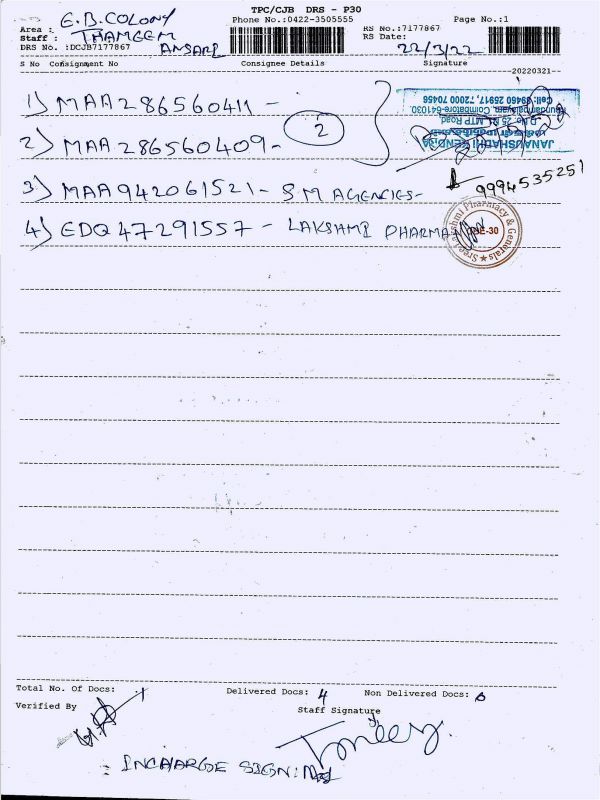 TPC/CJB DRS - P30
Area : E.B.COLONY
Phone No.:0422-3505555
RS No.:7177867
Page No.:1
Staff : THAMEEM ANSARI
RS Date: 22/3/22
DRS No. :DCJB7177867
S No Consignment No Consignee Details Signature
20220321
1) MAA286560411 -
2) MAA286560409-
2
JANAUSHADHI KENDRA
D.No. 25, MTP Road
Koundampalayam, Coimbatore-641030
Cell: 89460 25917, 72000 70456
3) MAA942061521 - S M AGENCIES-
9994535251
4) EDQ47291557 - LAKSHMI PHARMA
Sree Lakshmi Pharmacy & Generals
CBE-30
Total No. Of Docs:
Delivered Docs: 4
Non Delivered Docs: 0
Verified By
Staff Signature
INCHARGE SIGN: